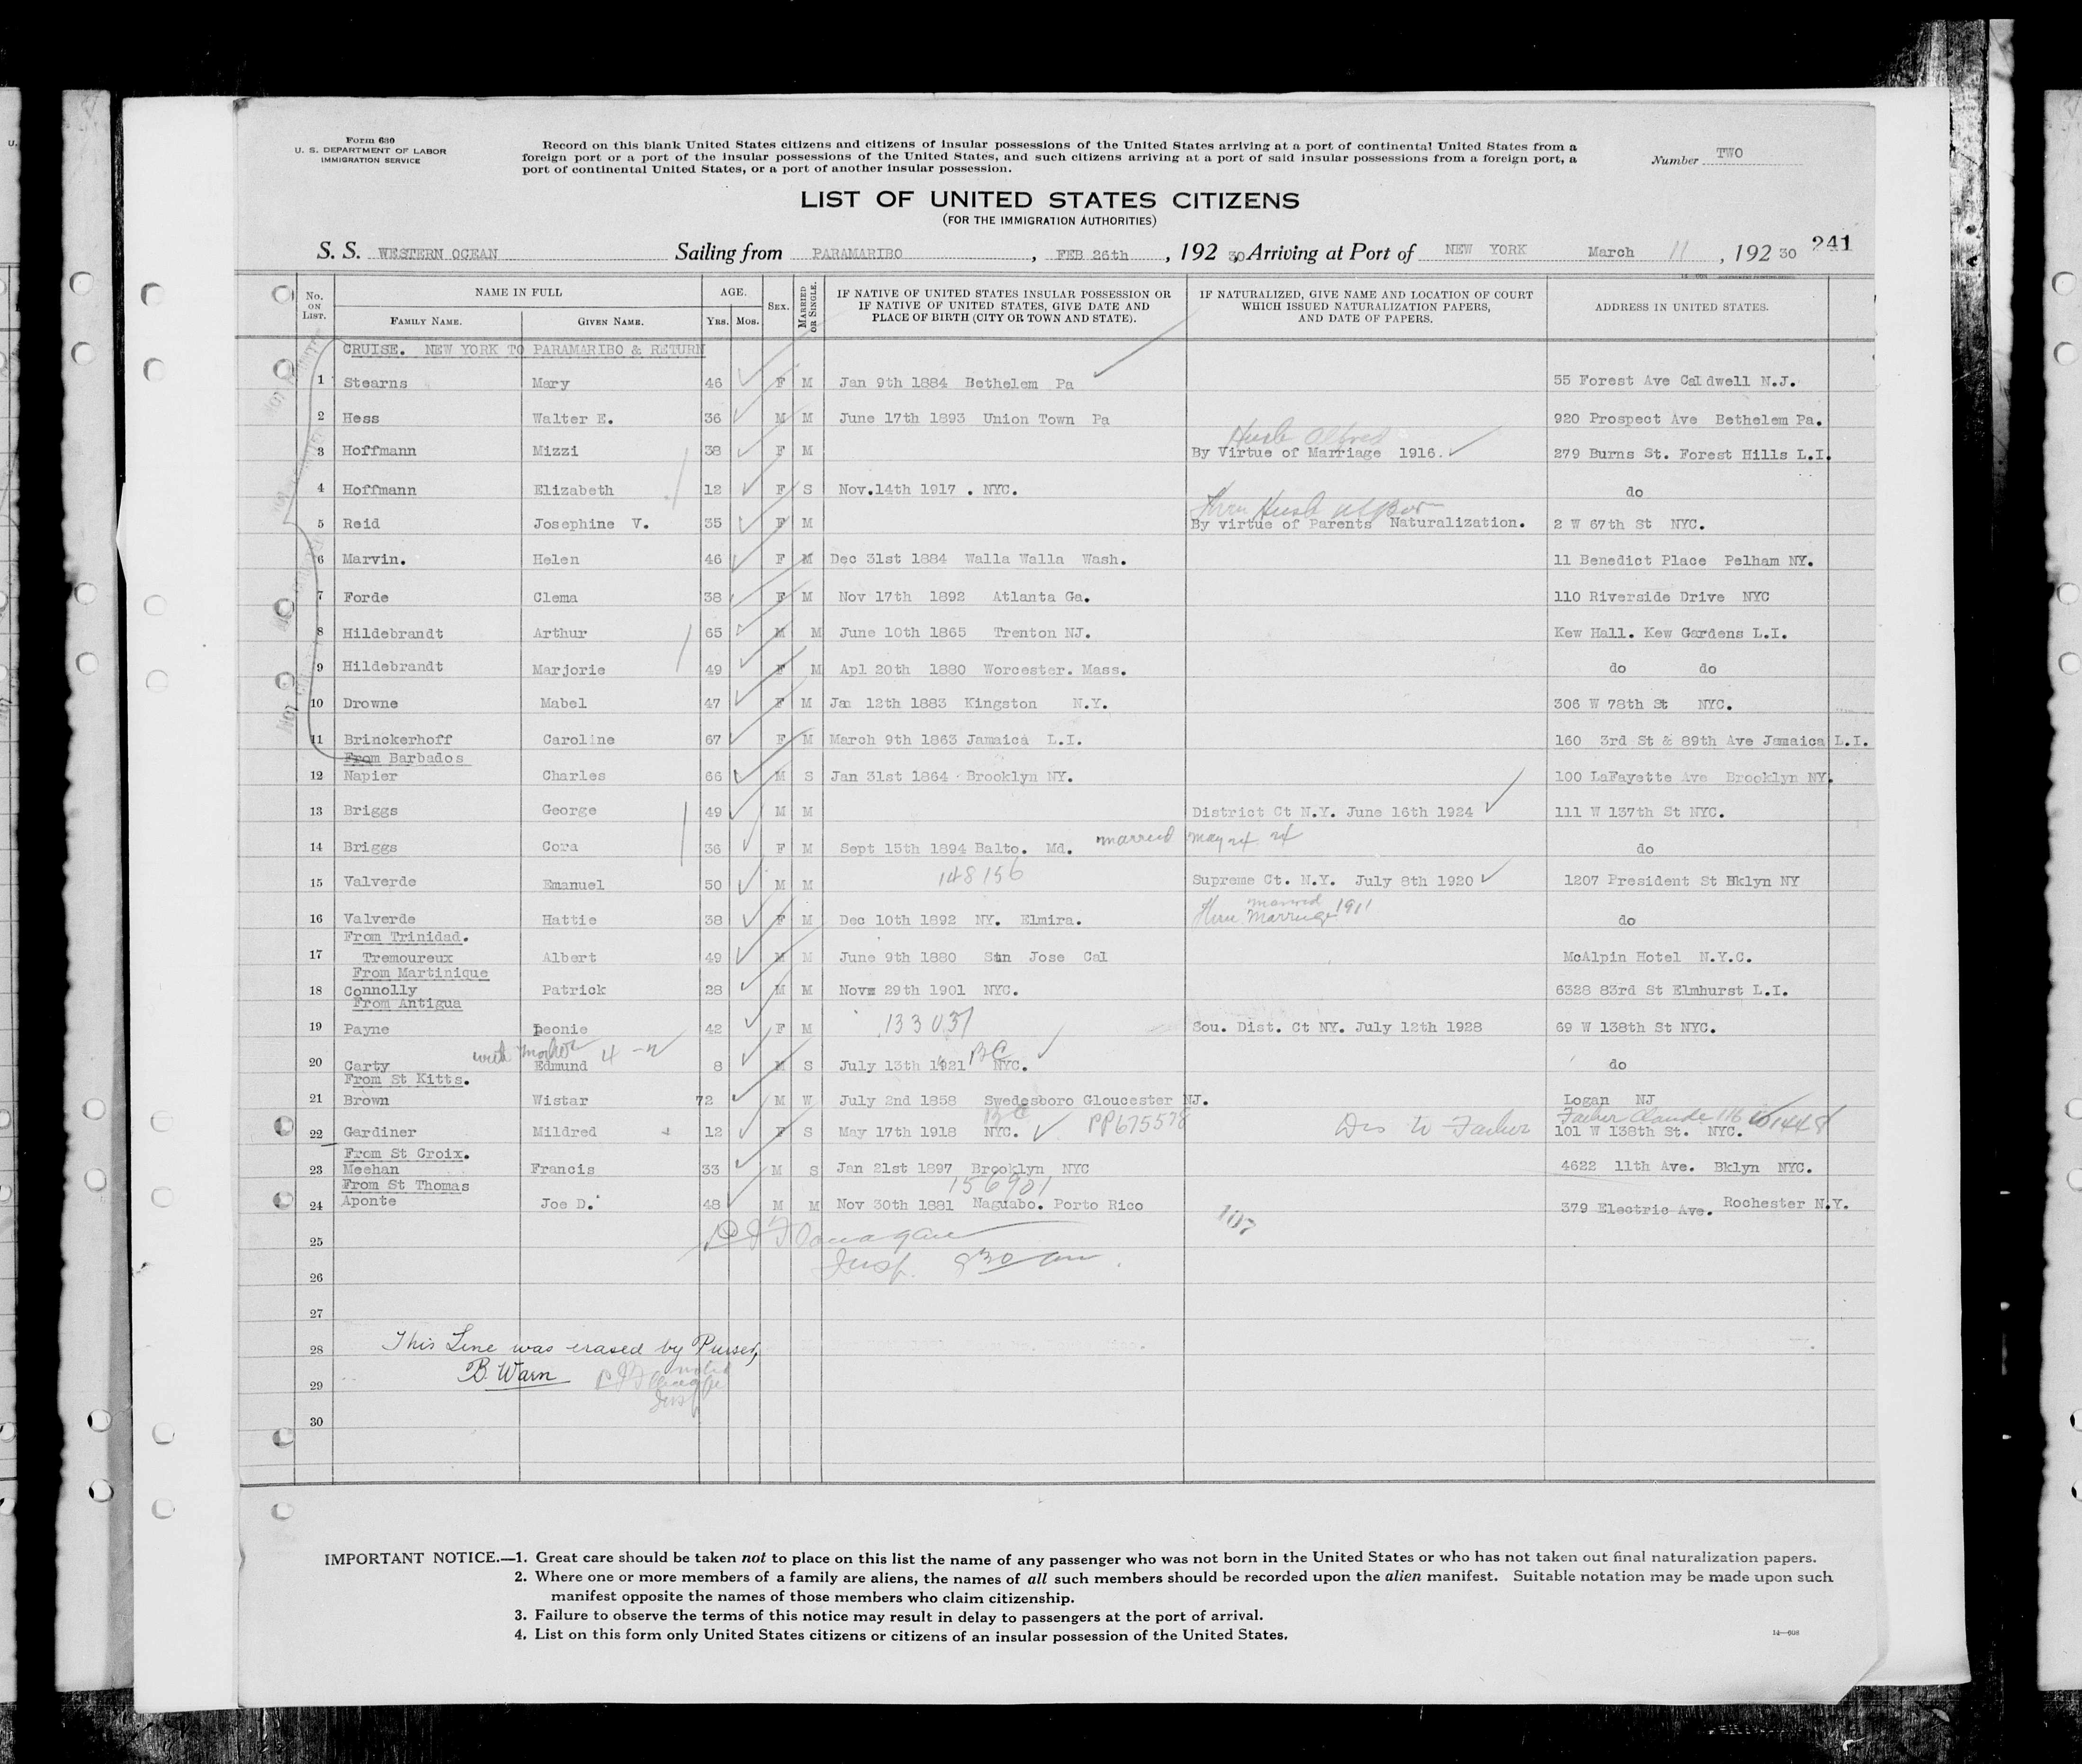 Form 630
U. S. DEPARTMENT OF LABOR
IMMIGRATION SERVICE
Record on this blank United States citizens and citizens of insular possessions of the United States arriving at a port of continental United States from a
foreign port or a port of the insular possessions of the United States, and such citizens arriving at a port of said insular possessions from a foreign port, a
port of continental United States, or a port of another insular possession.
Number TWO
LIST OF UNITED STATES CITIZENS
(FOR THE IMMIGRATION AUTHORITIES)
S. S. WESTERN OCEAN Sailing from PARAMARIBO , FEB 26th , 192 30, Arriving at Port of NEW YORK March 11 , 192 30 241
No. ON LIST. NAME IN FULL FAMILY NAME. GIVEN NAME. AGE. YRS. MOS. SEX. MARRIED OR SINGLE. IF NATIVE OF UNITED STATES INSULAR POSSESSION OR IF NATIVE OF UNITED STATES, GIVE DATE AND PLACE OF BIRTH (CITY OR TOWN AND STATE). IF NATURALIZED, GIVE NAME AND LOCATION OF COURT WHICH ISSUED NATURALIZATION PAPERS, AND DATE OF PAPERS. ADDRESS IN UNITED STATES.
CRUISE. NEW YORK TO PARAMARIBO & RETURN
1 Stearns Mary 46 F M Jan 9th 1884 Bethelem Pa 55 Forest Ave Caldwell N.J.
2 Hess Walter E. 36 M M June 17th 1893 Union Town Pa 920 Prospect Ave Bethelem Pa.
Husb Alfred
3 Hoffmann Mizzi 38 F M By Virtue of Marriage 1916. 279 Burns St. Forest Hills L.I.
4 Hoffmann Elizabeth 12 F S Nov.14th 1917 . NYC. do
Thru Husb
5 Reid Josephine V. 35 F M By virtue of Parents Naturalization. 2 W 67th St NYC.
6 Marvin. Helen 46 F M Dec 31st 1884 Walla Walla Wash. 11 Benedict Place Pelham NY.
7 Forde Clema 38 F M Nov 17th 1892 Atlanta Ga. 110 Riverside Drive NYC
8 Hildebrandt Arthur 65 M M June 10th 1865 Trenton NJ. Kew Hall. Kew Gardens L.I.
9 Hildebrandt Marjorie 49 F M Apl 20th 1880 Worcester. Mass. do do
10 Drowne Mabel 47 F M Jan 12th 1883 Kingston N.Y. 306 W 78th St NYC.
11 Brinckerhoff Caroline 67 F M March 9th 1863 Jamaica L.I. 160 3rd St & 89th Ave Jamaica L.I.
From Barbados
12 Napier Charles 66 M S Jan 31st 1864 Brooklyn NY. 100 LaFayette Ave Brooklyn NY.
13 Briggs George 49 M M District Ct N.Y. June 16th 1924 111 W 137th St NYC.
14 Briggs Cora 36 F M Sept 15th 1894 Balto. Md. married may 24 24 do
148156
15 Valverde Emanuel 50 M M Supreme Ct. N.Y. July 8th 1920 1207 President St Bklyn NY
married
16 Valverde Hattie 38 F M Dec 10th 1892 NY. Elmira. Thru Marriage 1911 do
From Trinidad.
17 Tremoureux Albert 49 M M June 9th 1880 San Jose Cal McAlpin Hotel N.Y.C.
From Martinique
18 Connolly Patrick 28 M M Nov 29th 1901 NYC. 6328 83rd St Elmhurst L.I.
From Antigua
133031
19 Payne Leonie 42 F M Sou. Dist. Ct NY. July 12th 1928 69 W 138th St NYC.
with mother BC
20 Carty Edmund 8 M S July 13th 1921 NYC. do
From St Kitts.
21 Brown Wistar 72 M W July 2nd 1858 Swedesboro Gloucester NJ. Logan NJ
BC PP675578 Dis to Father Father Claude 116 W 144 St
22 Gardiner Mildred 12 F S May 17th 1918 NYC. 101 W 138th St. NYC.
From St Croix.
23 Meehan Francis 33 M S Jan 21st 1897 Brooklyn NYC 4622 11th Ave. Bklyn NYC.
From St Thomas
156901
24 Aponte Joe D. 48 M M Nov 30th 1881 Naguabo. Porto Rico 379 Electric Ave. Rochester N.Y.
107
25 Flanagan
Insp. 930 am
26
27
28 This Line was erased by Purser,
B. Warn
noted
29
Insp
30
IMPORTANT NOTICE.—1. Great care should be taken not to place on this list the name of any passenger who was not born in the United States or who has not taken out final naturalization papers.
2. Where one or more members of a family are aliens, the names of all such members should be recorded upon the alien manifest. Suitable notation may be made upon such
manifest opposite the names of those members who claim citizenship.
3. Failure to observe the terms of this notice may result in delay to passengers at the port of arrival.
4. List on this form only United States citizens or citizens of an insular possession of the United States.
14—608